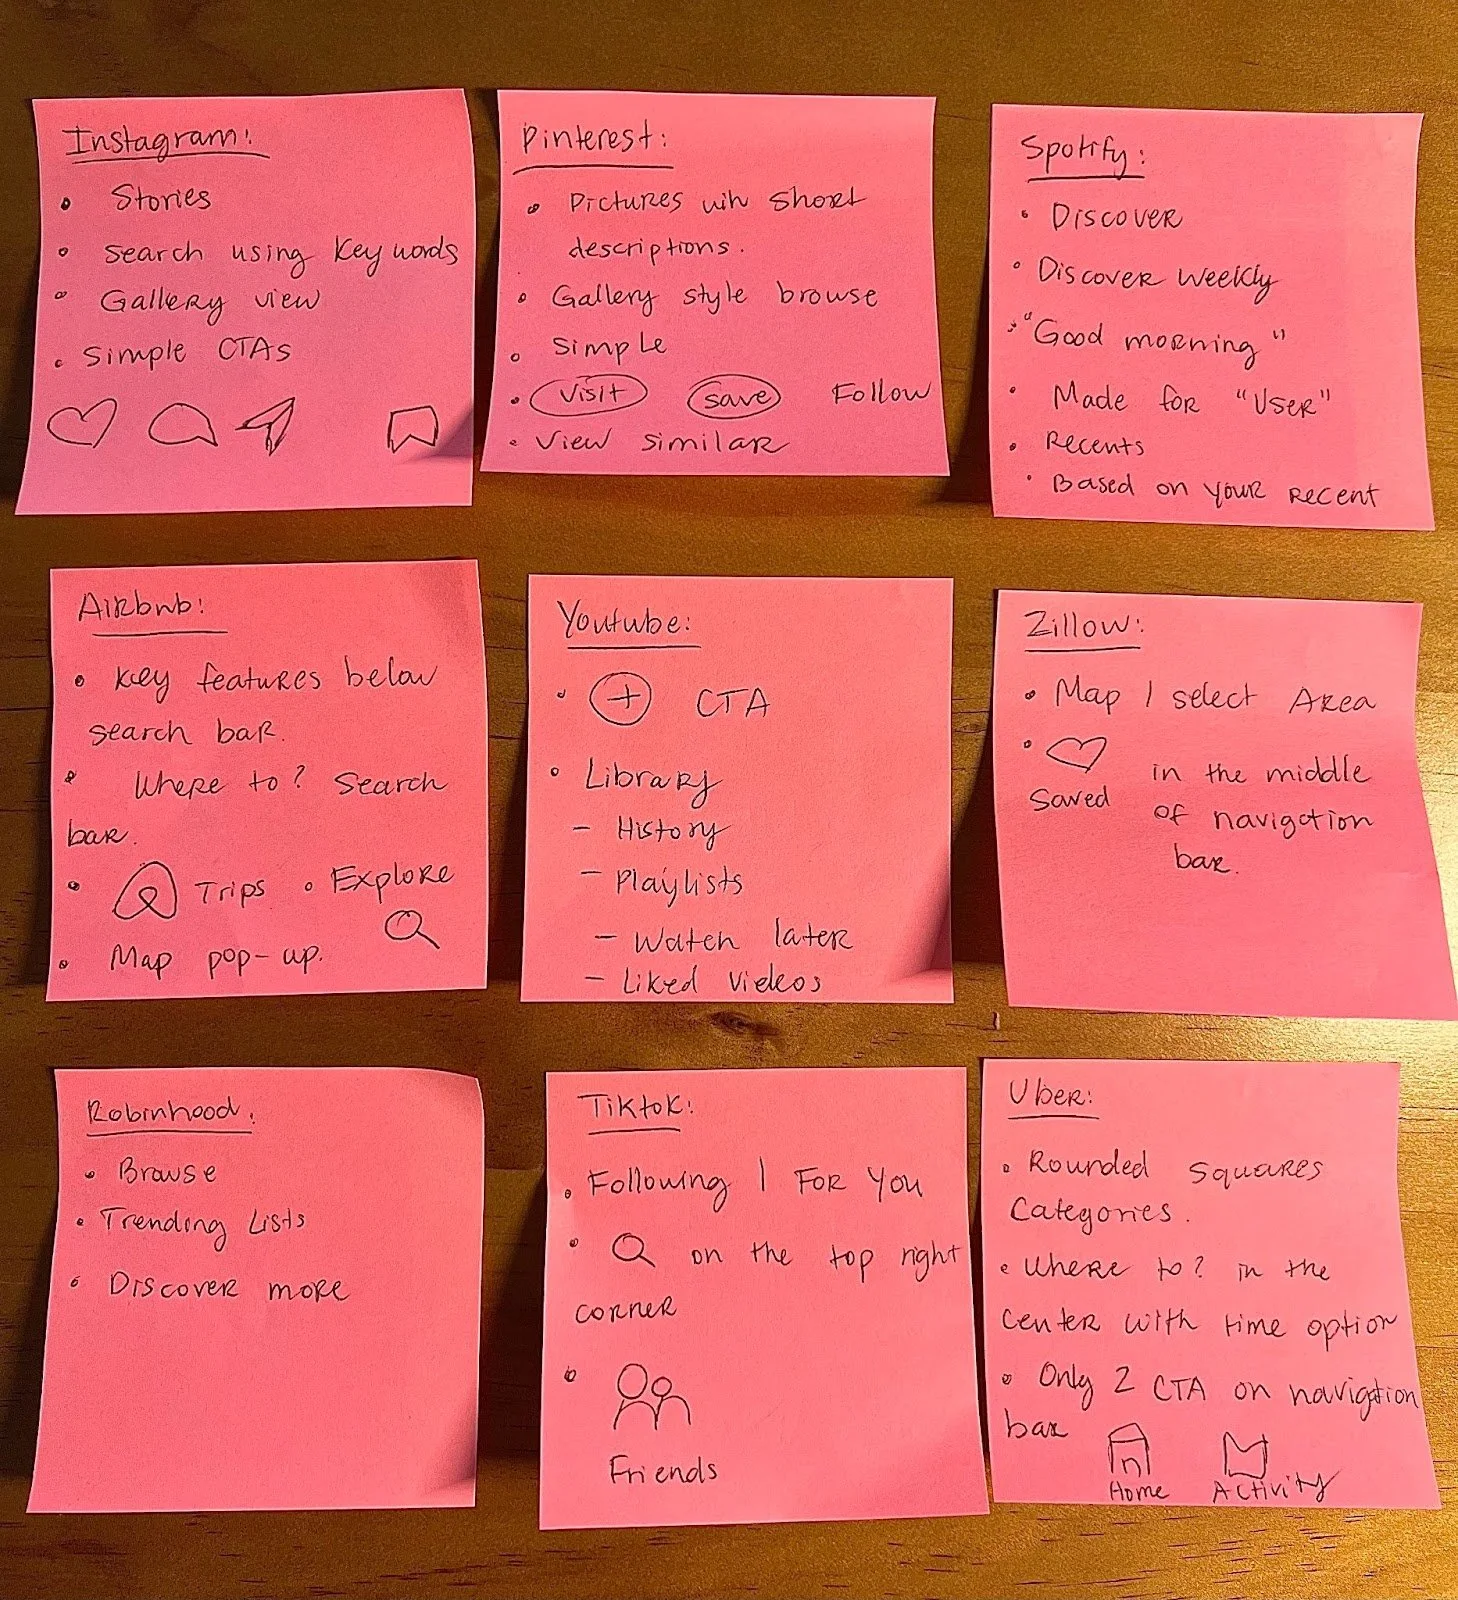 Instagram:
• Stories
• Search using Keywords
• Gallery view
• Simple CTAs
Pinterest:
• Pictures with Short
descriptions.
• Gallery style browse
• Simple
• Visit Save Follow
• View similar
Spotify:
• Discover
• Discover Weekly
• "Good morning"
• Made for "User"
• Recents
• Based on your recent
Airbnb:
• Key features below
search bar.
• Where to? Search
bar.
• Trips • Explore
• Map pop-up.
Youtube:
• + CTA
• Library
- History
- Playlists
- Watch later
- Liked videos
Zillow:
• Map | select Area
• in the middle
Saved of navigation
bar.
Robinhood.
• Browse
• Trending Lists
• Discover more
Tiktok:
• Following | For You
• on the top right
corner
•
Friends
Uber:
• Rounded Squares
Categories.
• Where to? in the
center with time option
• Only 2 CTA on navigation
bar
Home Activity